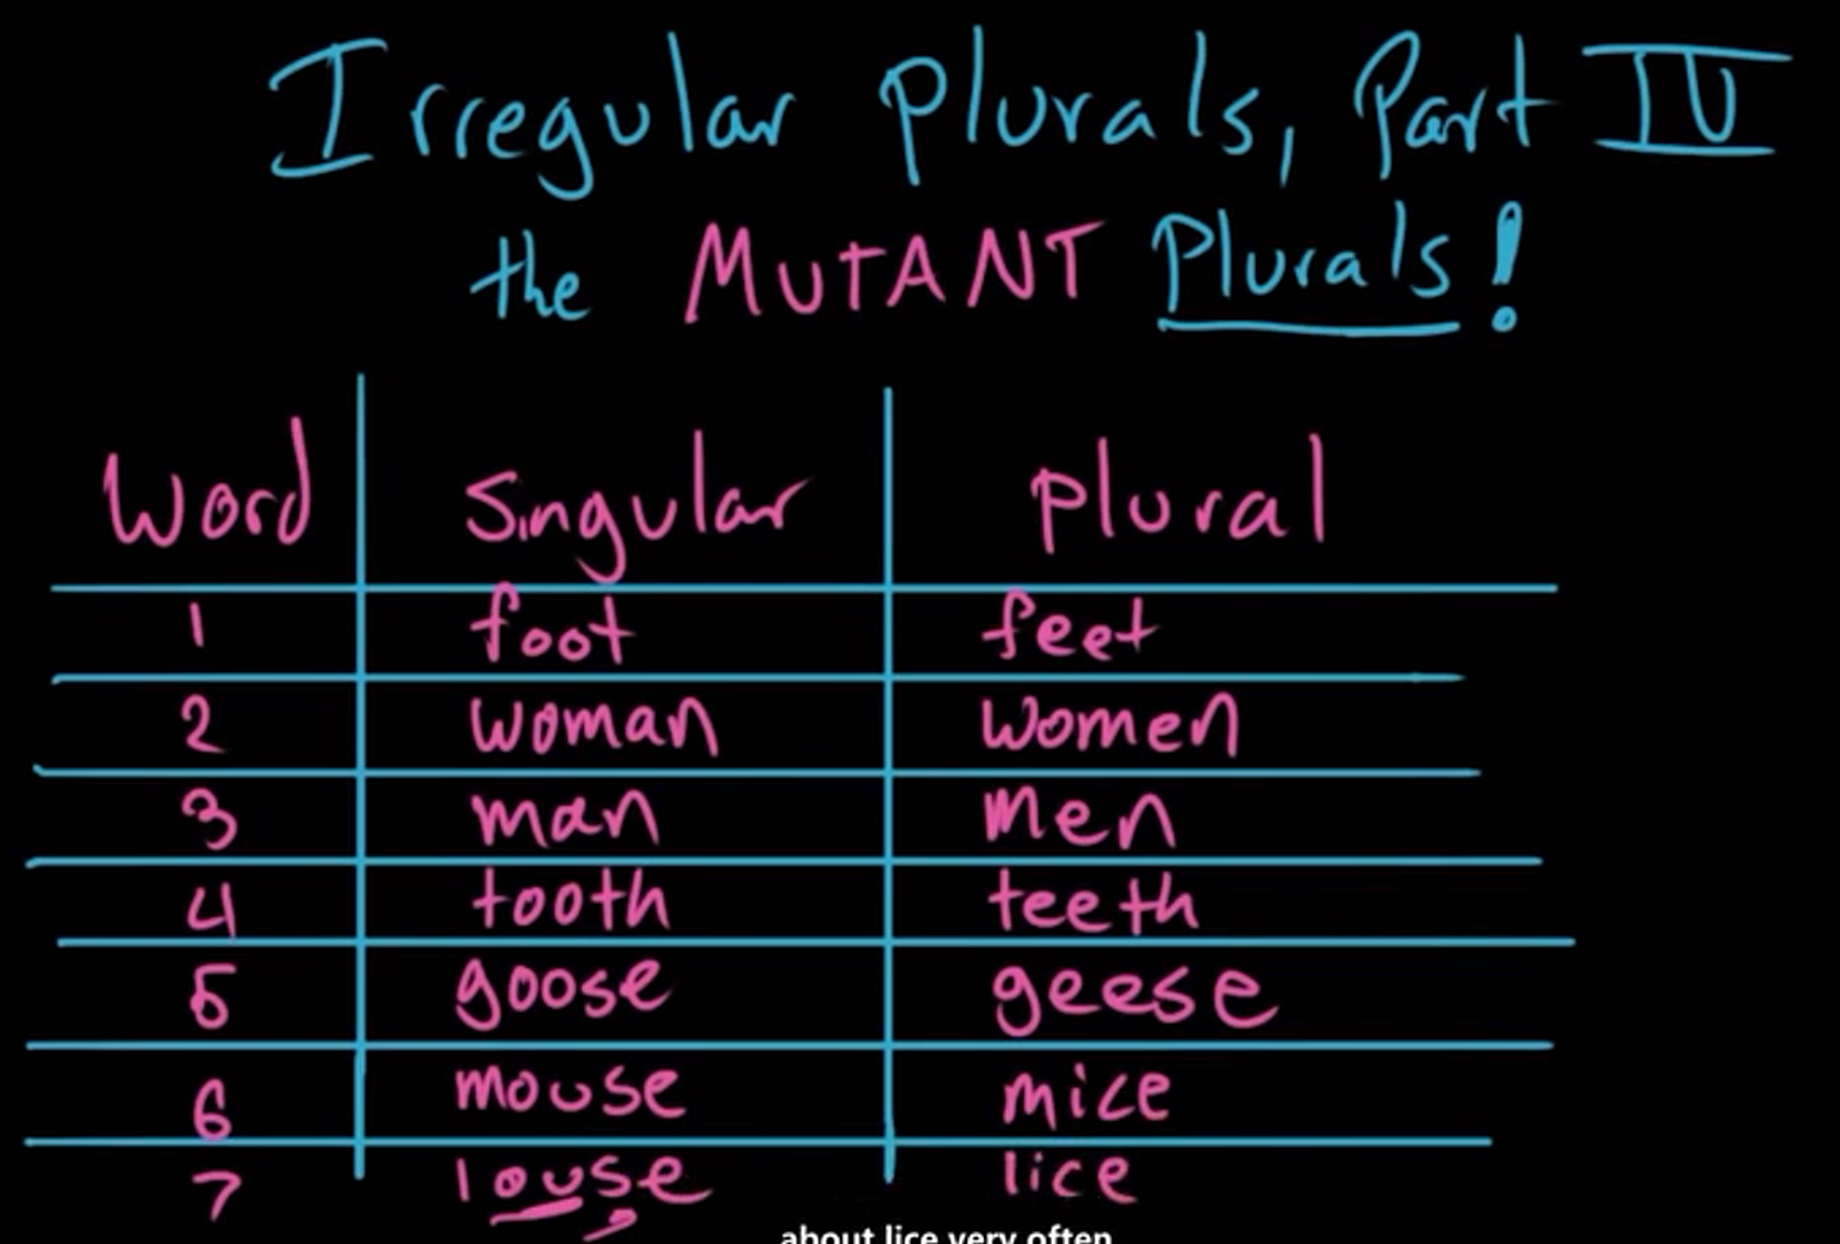 Irregular plurals, Part IV
the MUTANT Plurals!
Word Singular plural
1 foot feet
2 woman women
3 man men
4 tooth teeth
5 goose geese
6 mouse mice
7 louse lice
about lice very often